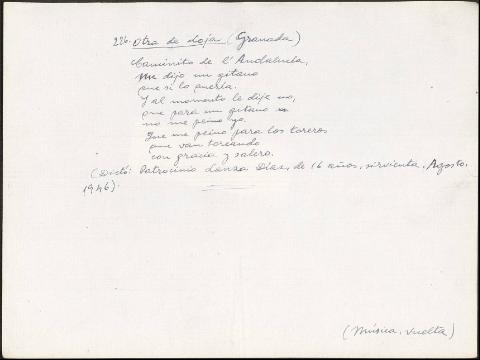 226. Otra de Loja (Granada)
Caminito de l'Andalucía,
me dijo un gitano
que si lo quería.
Y al momento le dije no,
que para un gitano
no me peino yo.
Que me peino para los toreros
que van toreando
con gracia y salero.
(Dictó: Patrocinio Lanza Días, de 16 años, sirvienta. Agosto,
1946).
(Música, vuelta)